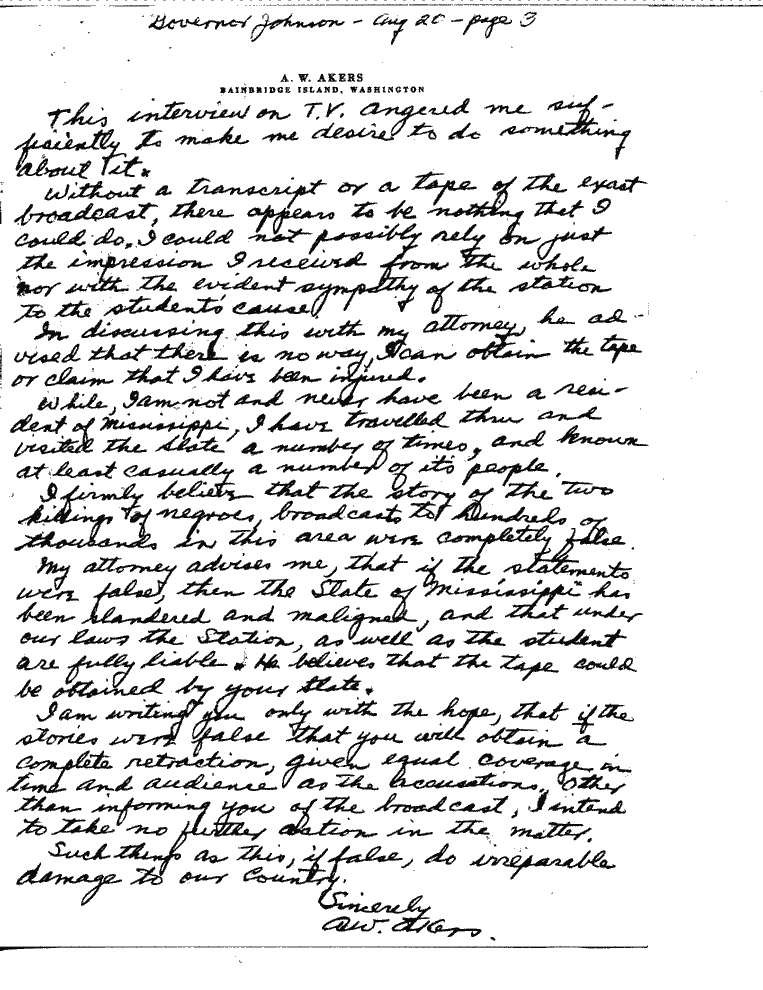 Governor Johnson - Aug 20 - page 3
A. W. AKERS
BAINBRIDGE ISLAND, WASHINGTON
This interview on T.V. angered me suf-
ficiently to make me desire to do something
about it.
Without a transcript or a tape of the exact
broadcast, there appears to be nothing that I
could do. I could not possibly rely on just
the impression I received from the whole
nor with the evident sympathy of the station
to the students' cause.
In discussing this with my attorney, he ad-
vised that there is no way, I can obtain the tape
or claim that I have been injured.
While, I am not and never have been a resi-
dent of Mississippi, I have travelled thru and
visited the State a number of times, and known
at least casually a number of it's people.
I firmly believe that the story of the two
killings of negroes, broadcasts to hundreds of
thousands in this area were completely false.
My attorney advises me, that if the statements
were false, then the State of Mississippi has
been slandered and maligned, and that under
our laws the Station, as well as the student
are fully liable. He believes that the tape could
be obtained by your State.
I am writing you only with the hope, that if the
stories were false that you will obtain a
complete retraction, given equal coverage in
time and audience as the accusations. Other
than informing you of the broadcast, I intend
to take no further action in the matter.
Such things as this, if false, do irreparable
damage to our Country.
Sincerely
A.W. Akers.